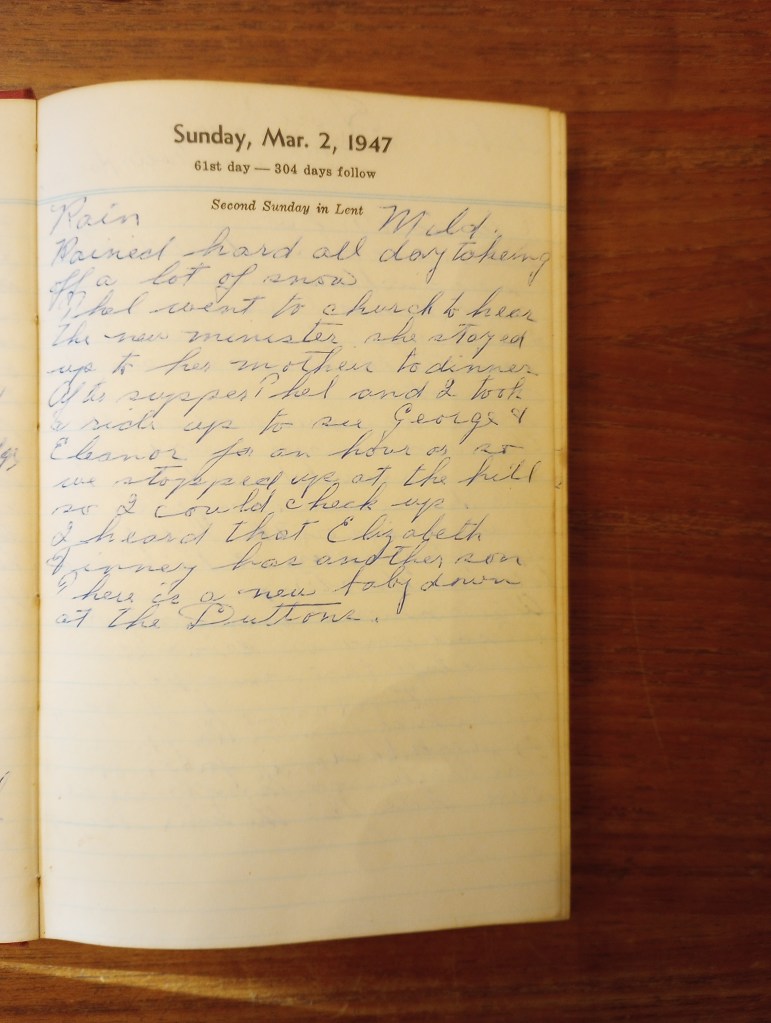 Sunday, Mar. 2, 1947
61st day — 304 days follow
Second Sunday in Lent
Rain Mild.
Rained hard all day takeing
off a lot of snow
Phel went to church to hear
the new minester she stayed
up to her mothers to dinner
After supper Phel and I took
a ride up to see George &
Eleanor for an hour or so
we stopped up at the hill
so I could check up.
I heard that Elizabeth
Finney has another son
There is a new baby down
at the Duttons.